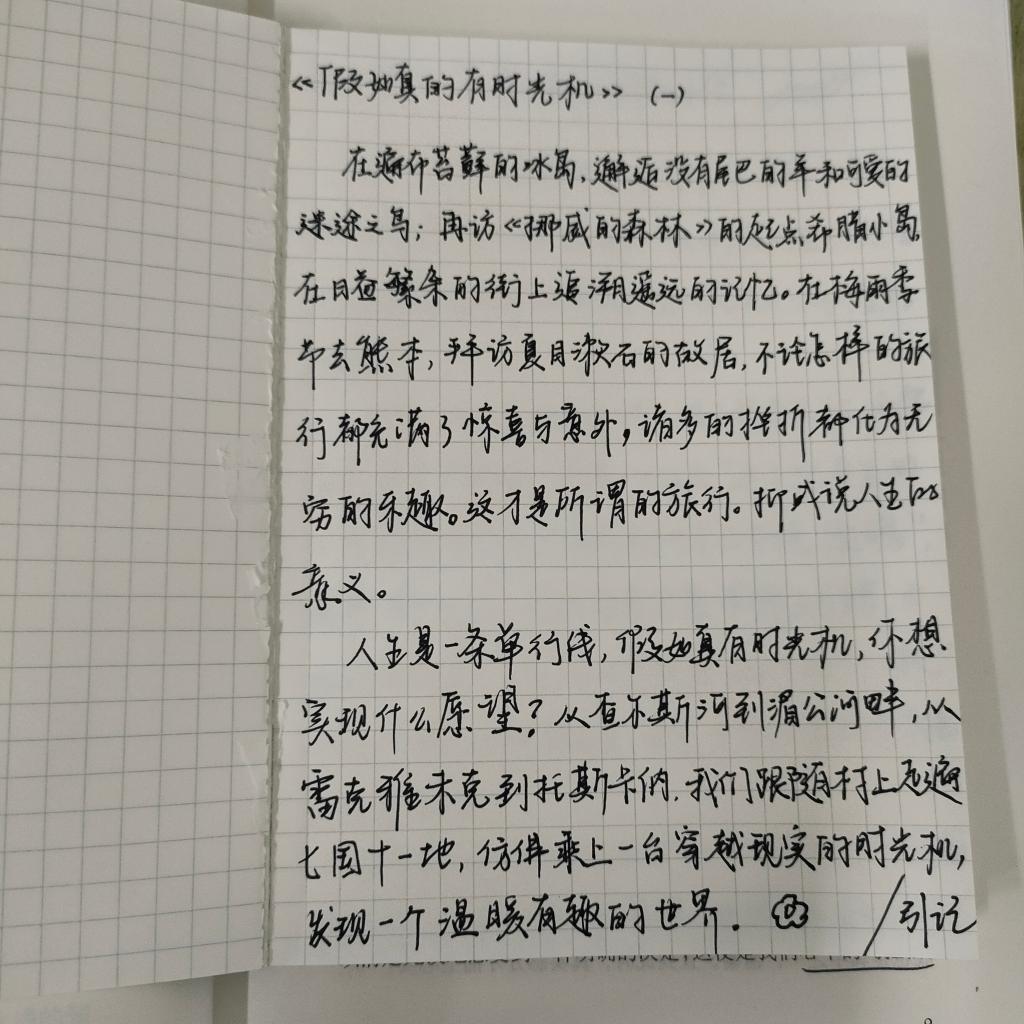 《假如真的有时光机》 (一)
在遍布苔藓的冰岛,邂逅没有尾巴的羊和可爱的
迷途之鸟;再访《挪威的森林》的起点希腊小岛,
在日益繁杂的街上追溯遥远的记忆。在梅雨季
节去熊本,拜访夏目漱石的故居,不论怎样的旅
行都充满了惊喜与意外,诸多的挫折都化为无
穷的乐趣。这才是所谓的旅行。抑或说人生的
意义。
人生是一条单行线,假如真有时光机,你想
实现什么愿望?从查尔斯河到湄公河畔,从
雷克雅未克到托斯卡纳,我们跟随村上走遍
七国十一地,仿佛乘上一台穿越现实的时光机,
发现一个温暖有趣的世界。
/引记